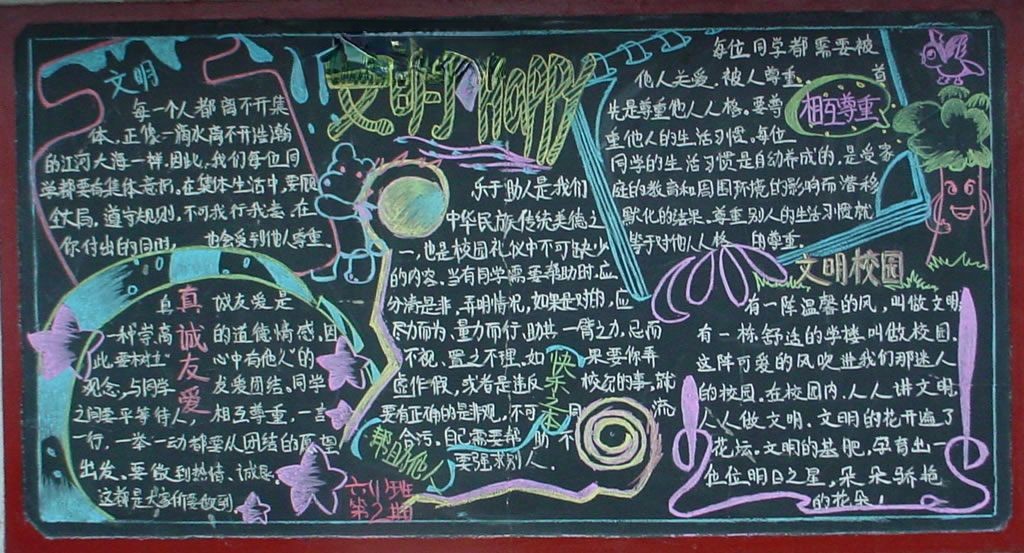 文明
每一个人都离不开集
体，正像一滴水离不开浩瀚
的江河大海一样。因此，我们每位同
学都要有集体意识。在集体生活中，要顾
全大局，遵守规则，不可我行我素，在
你付出的同时，也会受到他人尊重。
文明 happy
每位同学都需要被
他人关爱，被人尊重。首
先是尊重他人人格。要尊
重他人的生活习惯。每位
同学的生活习惯是自动养成的，是受家
庭的教育和周围环境的影响而潜移
默化的结果。尊重别人的生活习惯就
等于对他人人格的尊重。
相互尊重
乐于助人是我们
中华民族传统美德之
一，也是校园礼仪中不可缺少
的内容。当有同学需要帮助时，应
分清是非，弄明情况，如果是对的，应
尽力而为，量力而行，助其一臂之力，忌而
不视，置之不理，如果要你弄
虚作假，或者是违反校规的事，就
要有正确的是非观，不可同流
合污。自己需要帮助不
要强求别人。
快乐之本
帮助他人
真诚友爱
真诚友爱是
一种崇高的道德情感，因
此，要树立“心中有他人”的
观念，与同学友爱团结。同学
之间要平等待人，相互尊重，一言
一行，一举一动都要从团结的愿望
出发。要做到热情、诚恳。
这都是大家们要做到
六(1)班
第2期
文明校园
有一阵温馨的风，叫做文明，
有一栋舒适的学楼，叫做校园。
这阵可爱的风吹进我们那迷人
的校园。在校园内，人人讲文明，
人人做文明。文明的花开遍了
花坛。文明的基肥，孕育出一
位位明日之星，朵朵骄艳
的花朵！